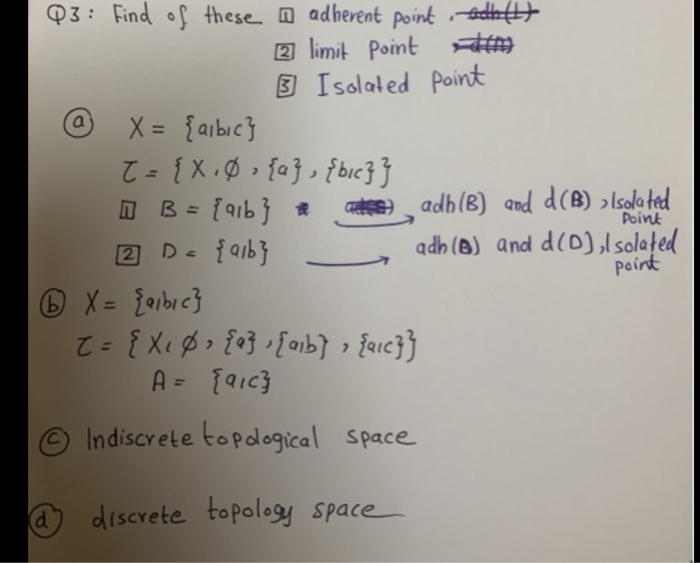 Q3: Find of these 1 adherent point .
2 limit point
3 Isolated point
a X = {a,b,c}
τ = {X, ∅, {a}, {b,c}}
1 B = {a,b} → adh(B) and d(B), Isolated point
2 D = {a,b} → adh(B) and d(D), Isolated point
b X = {a,b,c}
τ = {X, ∅, {a}, {a,b}, {a,c}}
A = {a,c}
c Indiscrete topological space
d discrete topology space